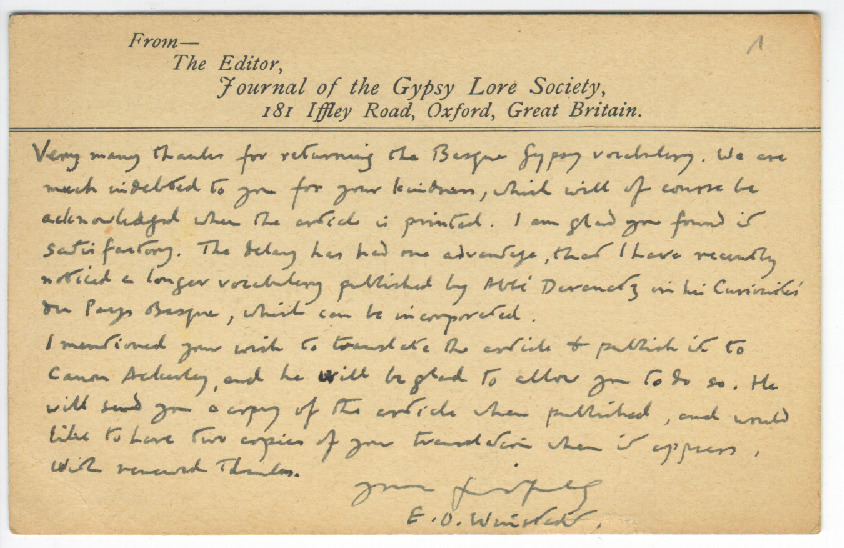 From—
The Editor,
Journal of the Gypsy Lore Society,
181 Iffley Road, Oxford, Great Britain.
Very many thanks for returning the Basque Gypsy vocabulary. We are
much indebted to you for your kindness, which will of course be
acknowledged when the article is printed. I am glad you found it
satisfactory. The delay has had one advantage, that I have recently
noticed a longer vocabulary published by Abbé Daranatz in his Curiosités
du Pays Basque, which can be incorporated.
I mentioned your wish to translate the article & publish it to
Canon Ackerley, and he will be glad to allow you to do so. He
will send you a copy of the article when published, and would
like to have two copies of your translation when it appears.
With renewed thanks.
Yours
E. O. Winstedt.